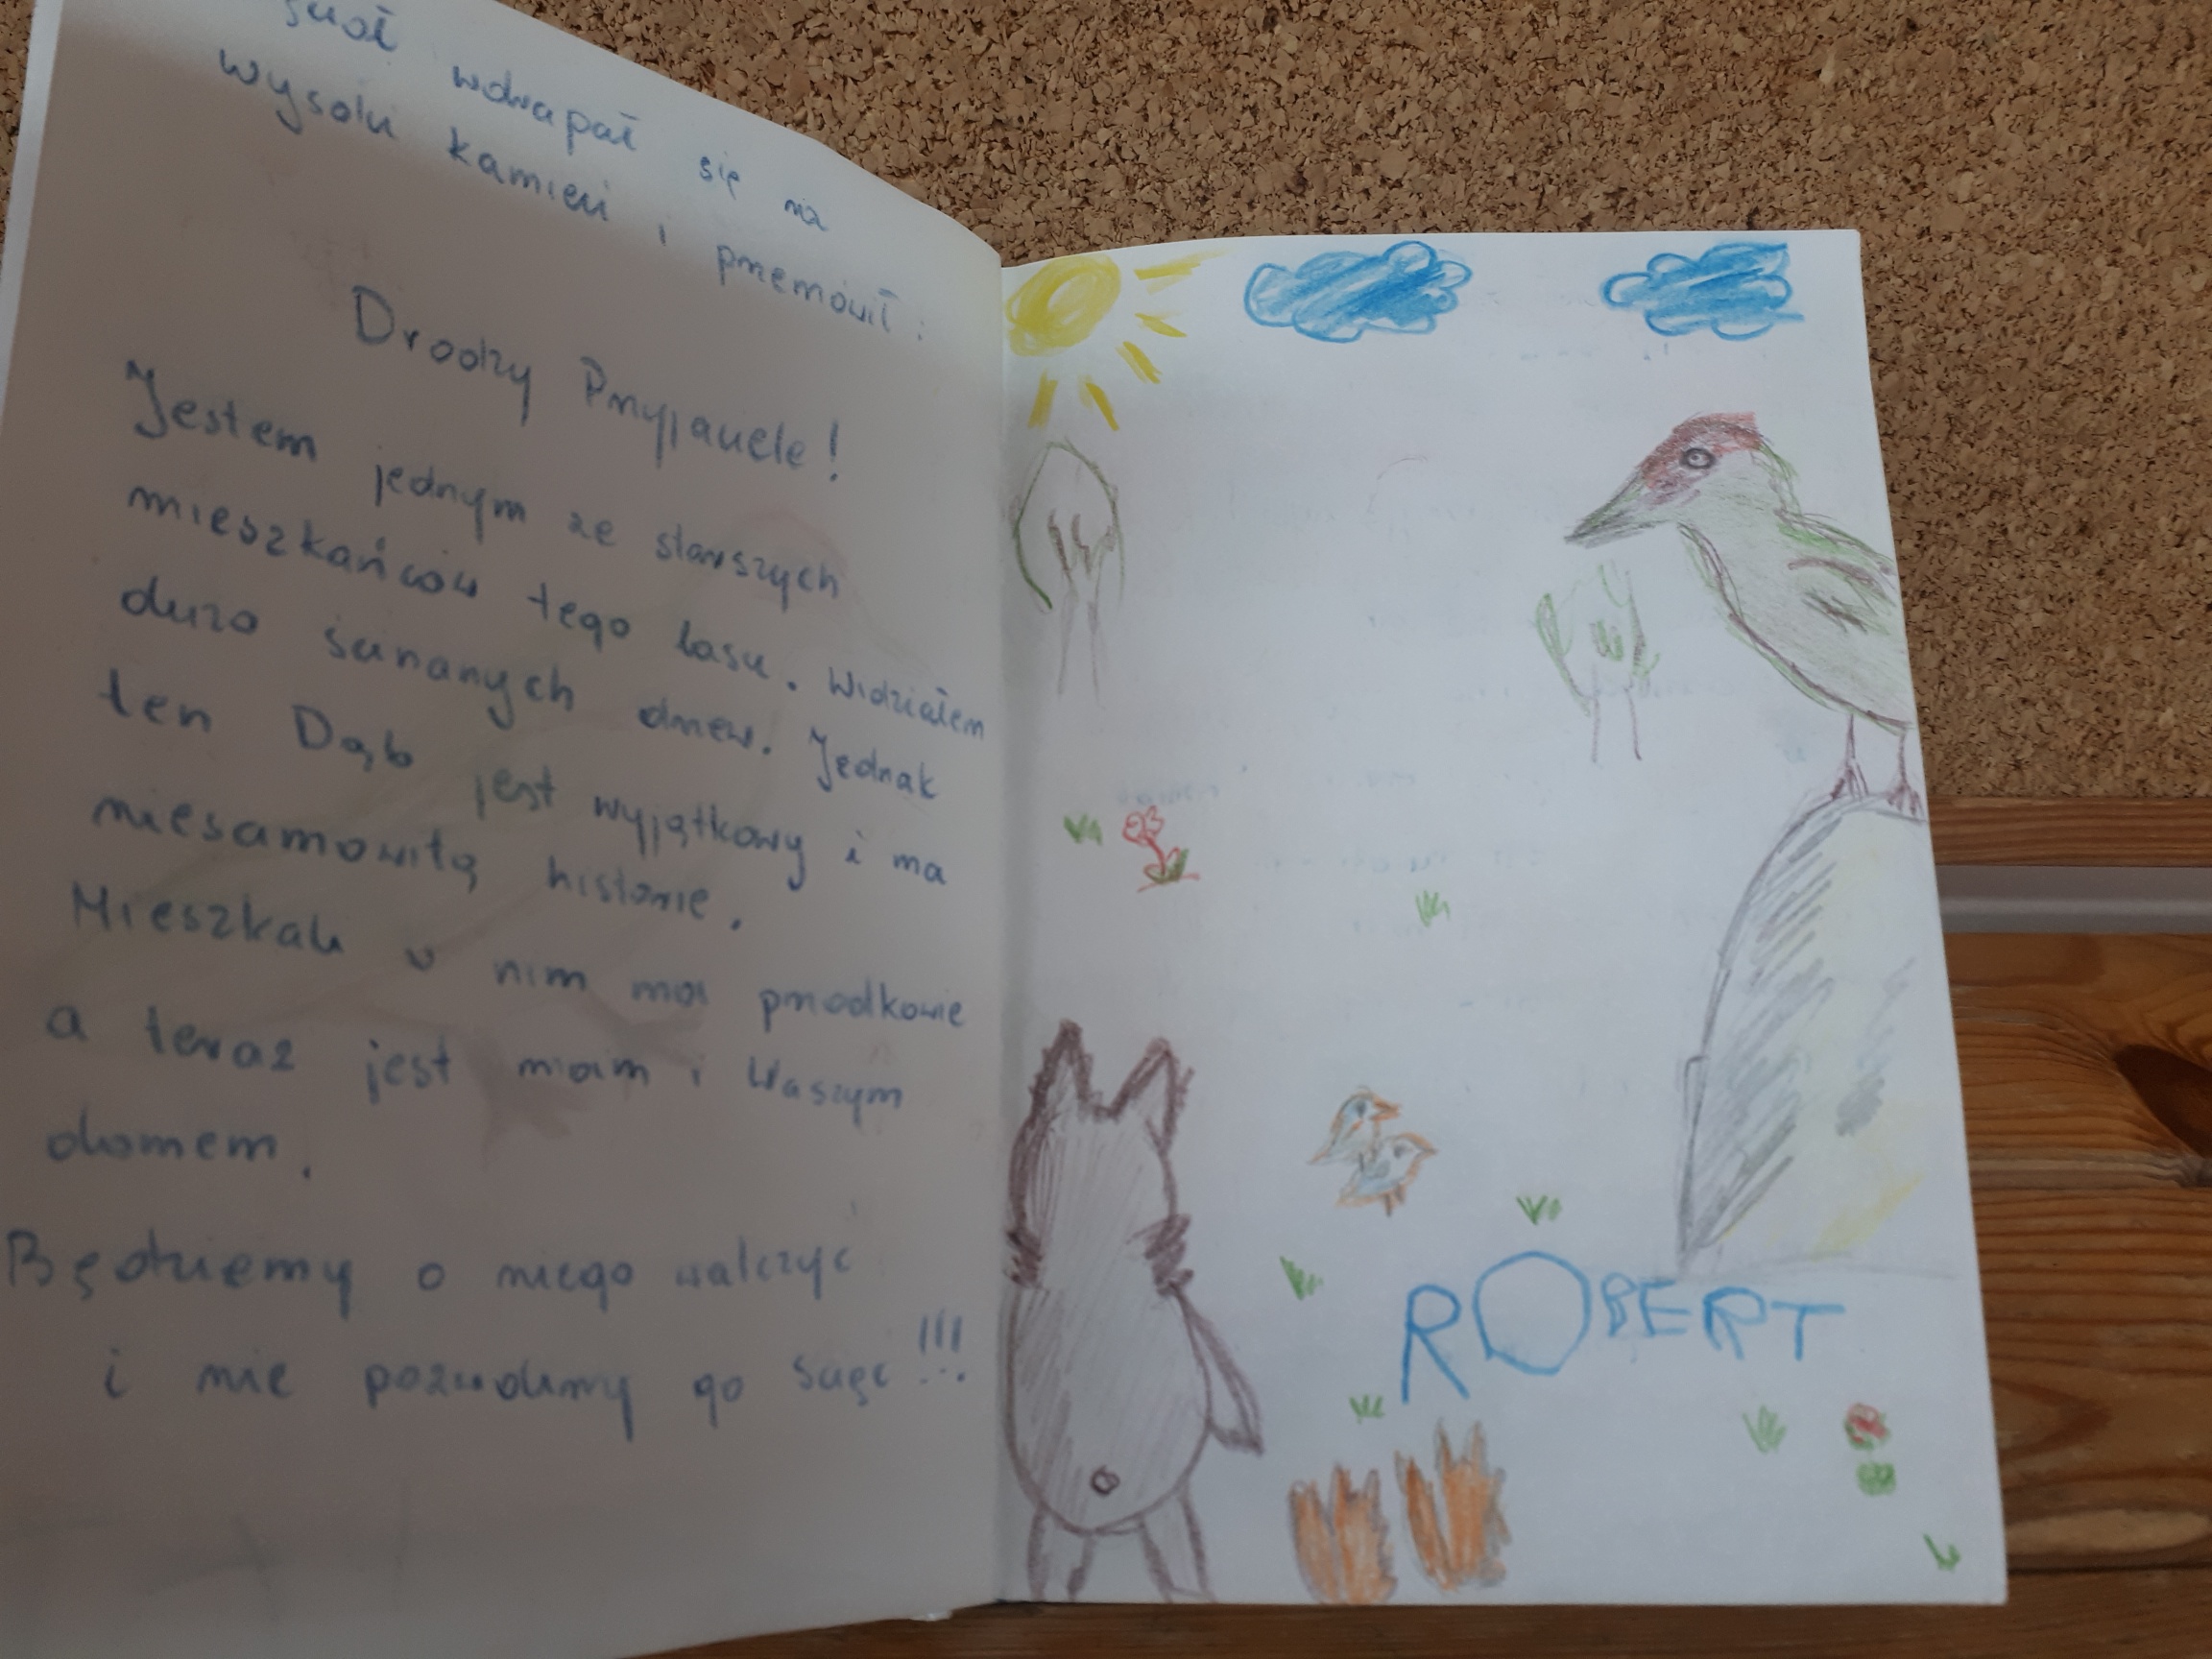 wdrapał się na
wysoki kamień i przemówił :
Drodzy Przyjaciele !
Jestem jednym ze starszych
mieszkańców tego lasu. Widziałem
dużo ścinanych drzew. Jednak
ten Dąb jest wyjątkowy i ma
niesamowitą historie.
Mieszkali w nim moi przodkowie
a teraz jest moim i Waszym
domem.
Będziemy o niego walczyć
i nie pozwolimy go ściąć !!!
ROBERT